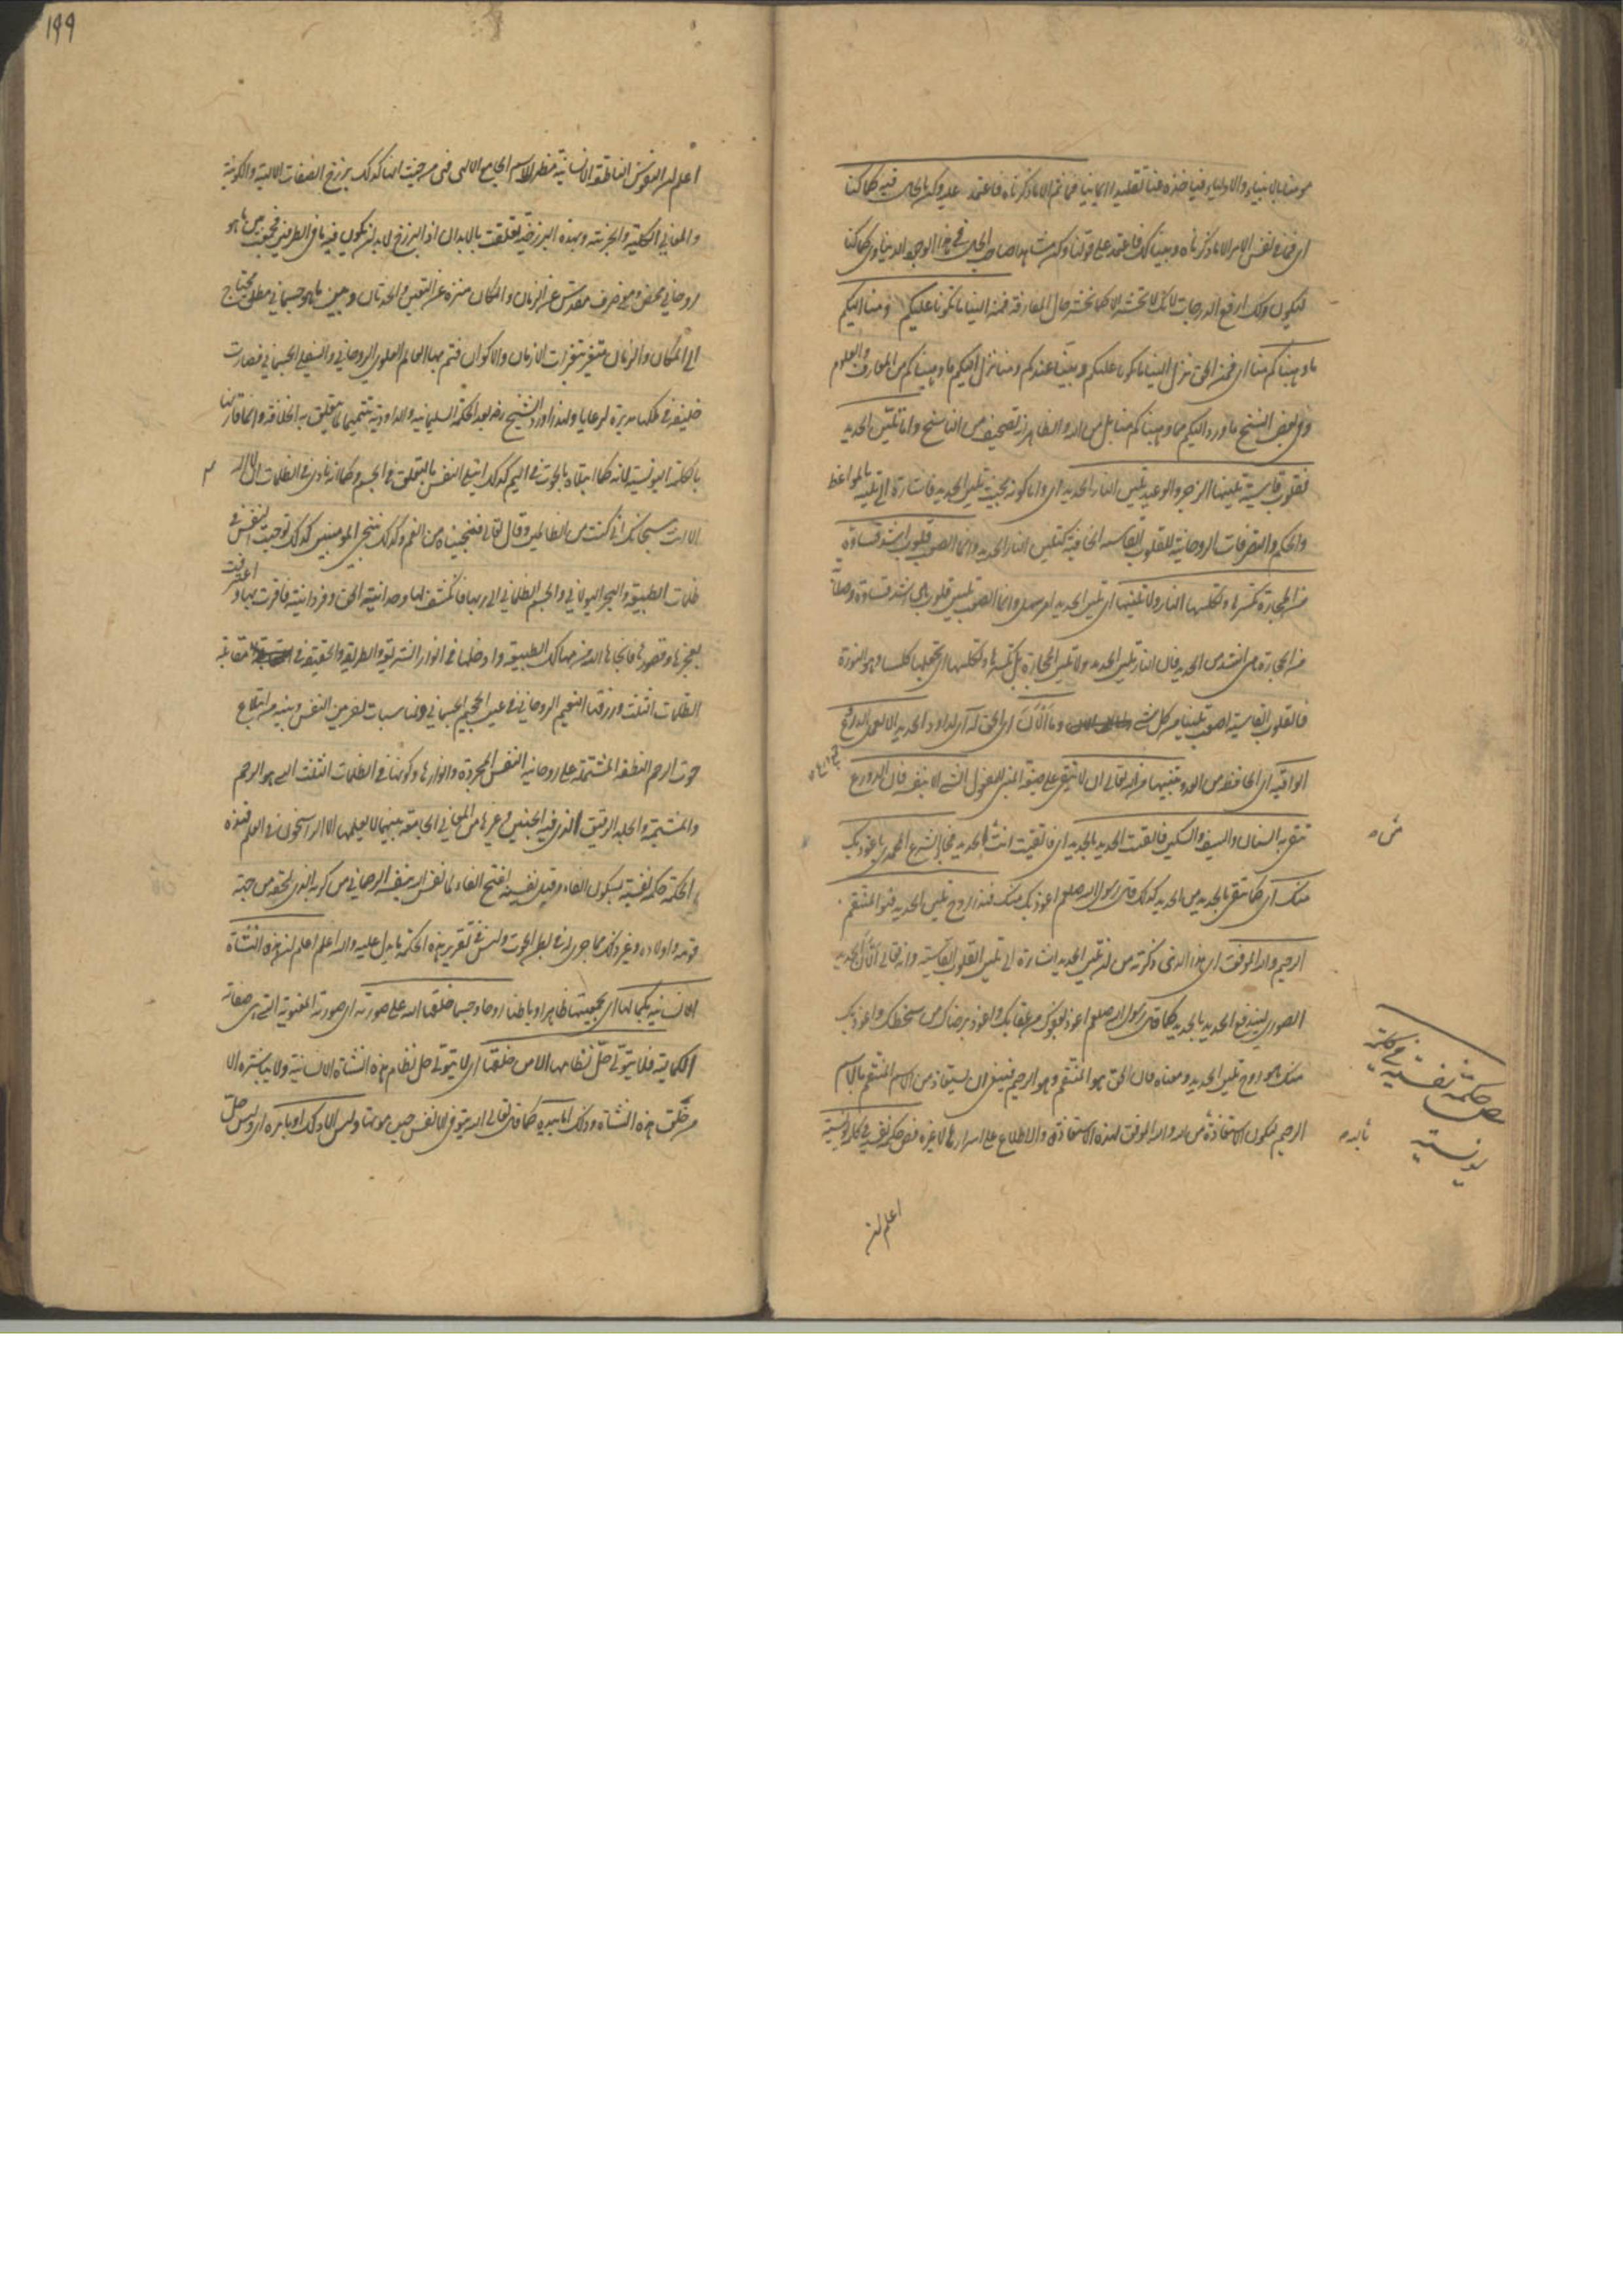 مؤمنا بالانبياء والاولياء فياخذه عنا تقليدا ايمانيا فما ثم الا ما ذكرناه فاعتمد عليه وكن بالحال فيه كما كنا
اي فما في نفس الامر الا ما ذكرناه وبيناه لك فاعتمد على قولنا وكن مشاهدا صاحب الحال في هذا الوجود الدنياوي كما كنا
ليكون ذلك ارفع الدرجات لانك لا تحشر الا كما تحشر حال المفارقة فمنه الينا ما تلونا عليكم ومنا اليكم
ما وهبناكم منا اي فمن الحق نزل الينا ما تلونا عليكم وبينا عندكم ومنا نزل اليكم ما وهبناكم من المعارف والعلوم
وفي بعض النسخ ما ورد اليكم مما وهبناكم منا بل من الله والظاهر انه تصحيف من الناسخ واما تليين الحديد
فقلوب قاسية يلينها الزجر والوعيد تليين النار الحديد اي واما كونه بحيث تلين الحديد فاشارة الى تليينه بالمواعظ
والحكم والتصرفات الروحانية للقلوب القاسية الجافية كتليين النار الحديد وانما الصعب قلوب اشد قساوة
من الحجارة تكسرها وتكلسها النار ولا تلينها اي تليين الحديد امر سهل وانما الصعب تليين قلوب هي اشد قساوة وصلابة
من الحجارة هي اشد من الحديد فان النار تلين الحديد ولا تلين الحجارة بل تكسرها وتكلسها اي تجعلها كلسا وهو النورة
فالقلوب القاسية اصعب تليينا من كل شيء وما الان اي الحق له اي لداود الحديد الا لعمل الدروع
الواقية اي الحافظة من العدو تنبيها من الله تعالى ان لا يتقى على صيغة المبني للمفعول الشيء الا بنفسه فان الدروع
تتقى به السنان والسيف والسكين فاتقيت الحديد بالحديد اي فاتقيت انت الحديد بالحديد فجاء الشرع المحمدي باعوذ بك
منك اي كما يتقى بالحديد من الحديد كذلك قال رسول الله صلعم اعوذ بك منك فهذا روح تليين الحديد فهو المنتقم
الرحيم والله الموفق اي هذا الذي ذكرته من ان تليين الحديد اشارة الى تليين القلوب القاسية وانه تعالى الان الحديد
الصوري ليندفع الحديد بالحديد كما قال رسول الله صلعم اعوذ بعفوك من عقابك واعوذ برضاك من سخطك واعوذ بك
منك هو روح تليين الحديد ومعناه فان الحق هو المنتقم وهو الرحيم فينبغي ان يستعاذ من الاسم المنتقم بالاسم
الرحيم ليكون الاستعاذة من الله والله الموفق لهذه الاستعاذة والاطلاع على اسرارها لا غيره فص حكمة نفسية في كلمة يونسية
فص حكمة نفسية في كلمة
يونسية
اعلم ان
١٩٩
اعلم ان النفوس الناطقة الانسانية مظهر الاسم الجامع الالهي فهي من حيث انها كذلك برزخ الصفات الالهية والكونية
والمعاني الكلية والجزئية وبهذه البرزخية تعلقت بالابدان اذ البرزخ لا بد ان يكون فيه ما في الطرفين فجمعت بين ما هو
روحاني محض ومعنى صرف مقدس عن الزمان والمكان منزه عن التغير والحدثان وبين ما هو جسماني مطلق محتاج
الى المكان والزمان متغير بتغيرات الازمان والاكوان فتم بها العالم العلوي الروحاني والسفلي الجسماني فصارت
خليفة في ملكها مدبرة لرعاياها ولهذا اورد الشيخ رضه بعد الحكمة السليمانية والداودية تتميما لما يتعلق به الخلافة وانما قارنها
بالكلمة اليونسية لانه كما ابتلاه بالحوت في اليم كذلك ابتلي النفس بالتعلق في الجسم وكما انه نادى في الظلمات ان لا اله
الا انت سبحانك اني كنت من الظالمين وقال تعالى فنجيناه من الغم وكذلك ننجي المؤمنين كذلك توجهت النفس في
ظلمات الطبيعة والبحر الهيولاني والجسم الظلماني الى ربها فانكشف لها وحدانية الحق وفردانيته فاقرت بها واعترفت
بعجزها وقصورها فانجاها الله من مهالك الطبيعة وادخلها في انوار الشريعة والطريقة والحقيقة في مقابلة
الظلمات الثلث ورزقها النعيم الروحاني في عين الجحيم الجسماني ومناسبات اخر بين النفس وبينه من ابتلاع
حوت الرحم النطفة المشتملة على روحانية النفس المجردة وانوارها وكونها في الظلمات الثلث التي هي الرحم
والمشيمة والجلد الرقيق الذي فيه الجنين وغيرها من المعاني الجامعة بينهما لا يعلمها الا الراسخون في العلم فهذه
الحكمة حكمة نفسية بسكون الفاء وقيل نفسية بفتح الفاء لما نفس الله بنفسه الرحماني من كربه الذي لحقه من جهة
قومه واولاده وغير ذلك مما جرى له في بطن الحوت وليس في تقرير هذه الحكمة ما يدل عليه والله اعلم اعلم ان هذه النشأة
الانسانية بكمالها اي بجمعيتها ظاهرا وباطنا روحا وجسما خلقها الله على صورته اي صورته المعنوية التي هي صفاته
الكمالية فلا يتولى حل نظامها الا من خلقها اي لا يتولى حل نظام هذه النشأة الانسانية ولا يباشره الا
من خلق هذه النشأة وذلك اما بيده كما قال تعالى الله يتوفى الانفس حين موتها وليس الا ذلك او بامره اي وليس حل